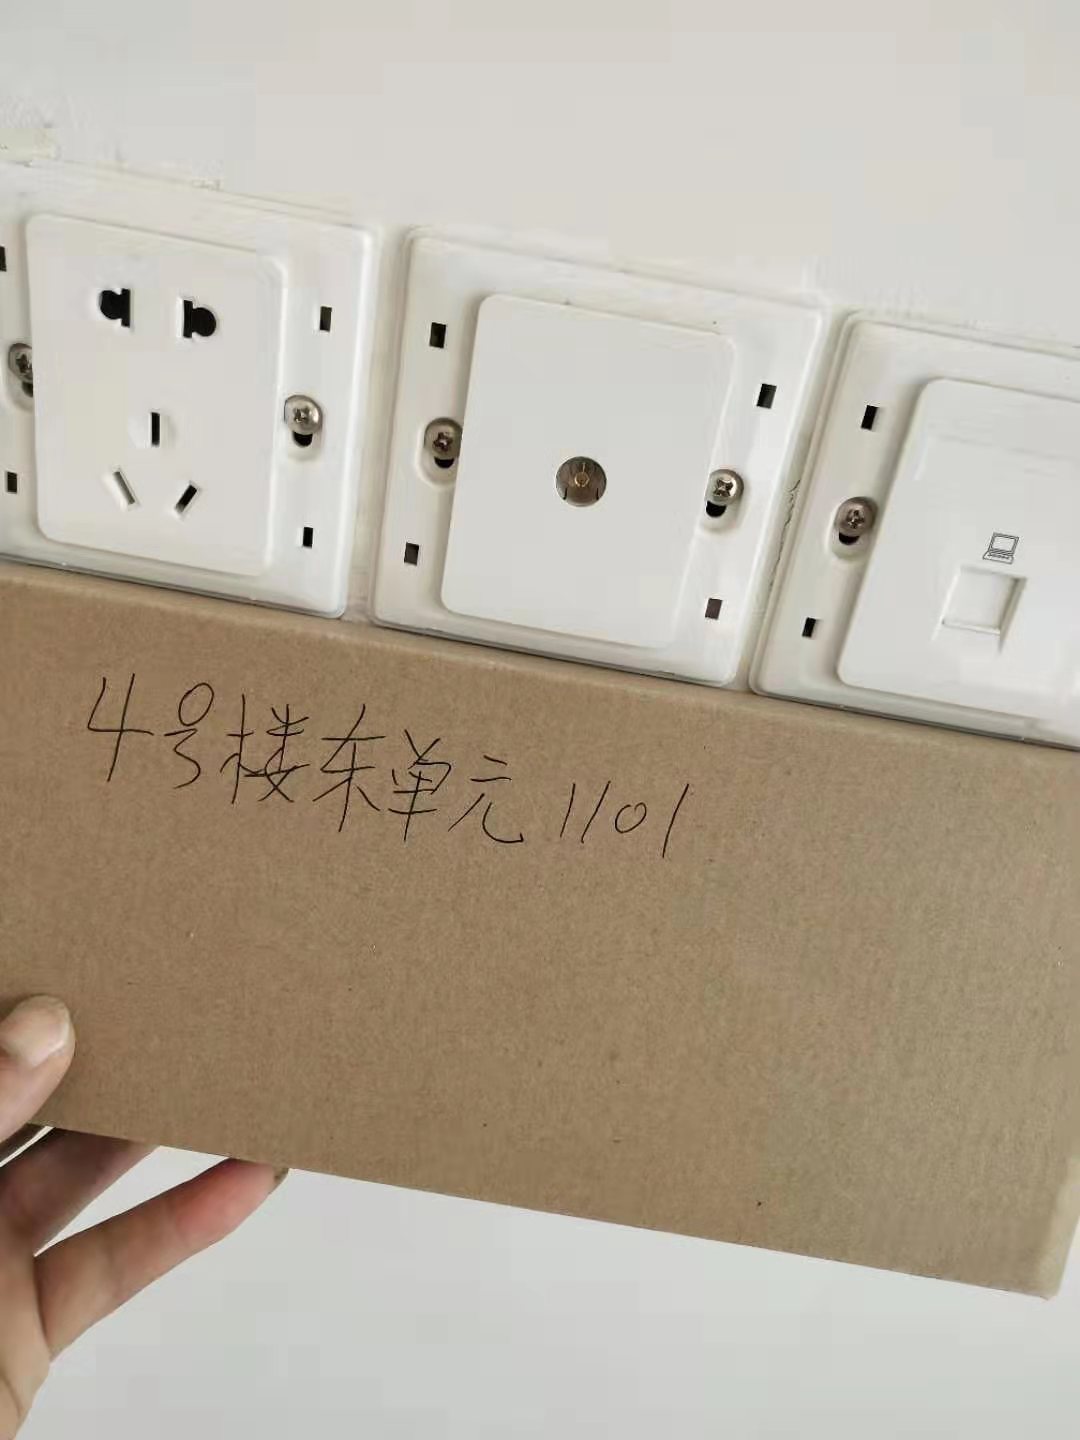 4号楼东单元1101